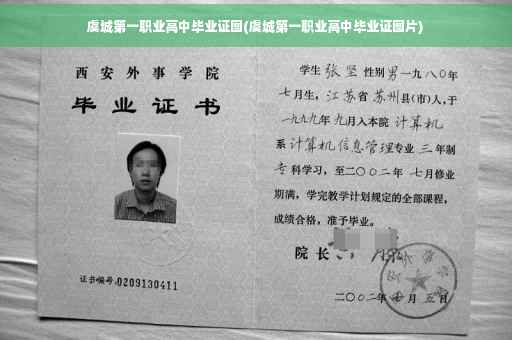 虞城第一职业高中毕业证图(虞城第一职业高中毕业证图片)
西安外事学院
毕业证书
证书编号:0209130411
学生 张坚 性别男 一九八0年
七月生，江苏省 苏州县(市)人，于
一九九九年 九月入本院 计算机
系 计算机信息管理专业 三 年制
专 科学习，至二〇〇二年 七月修业
期满，学完教学计划规定的全部课程，
成绩合格，准予毕业。
院长
二〇〇二年 月 五日